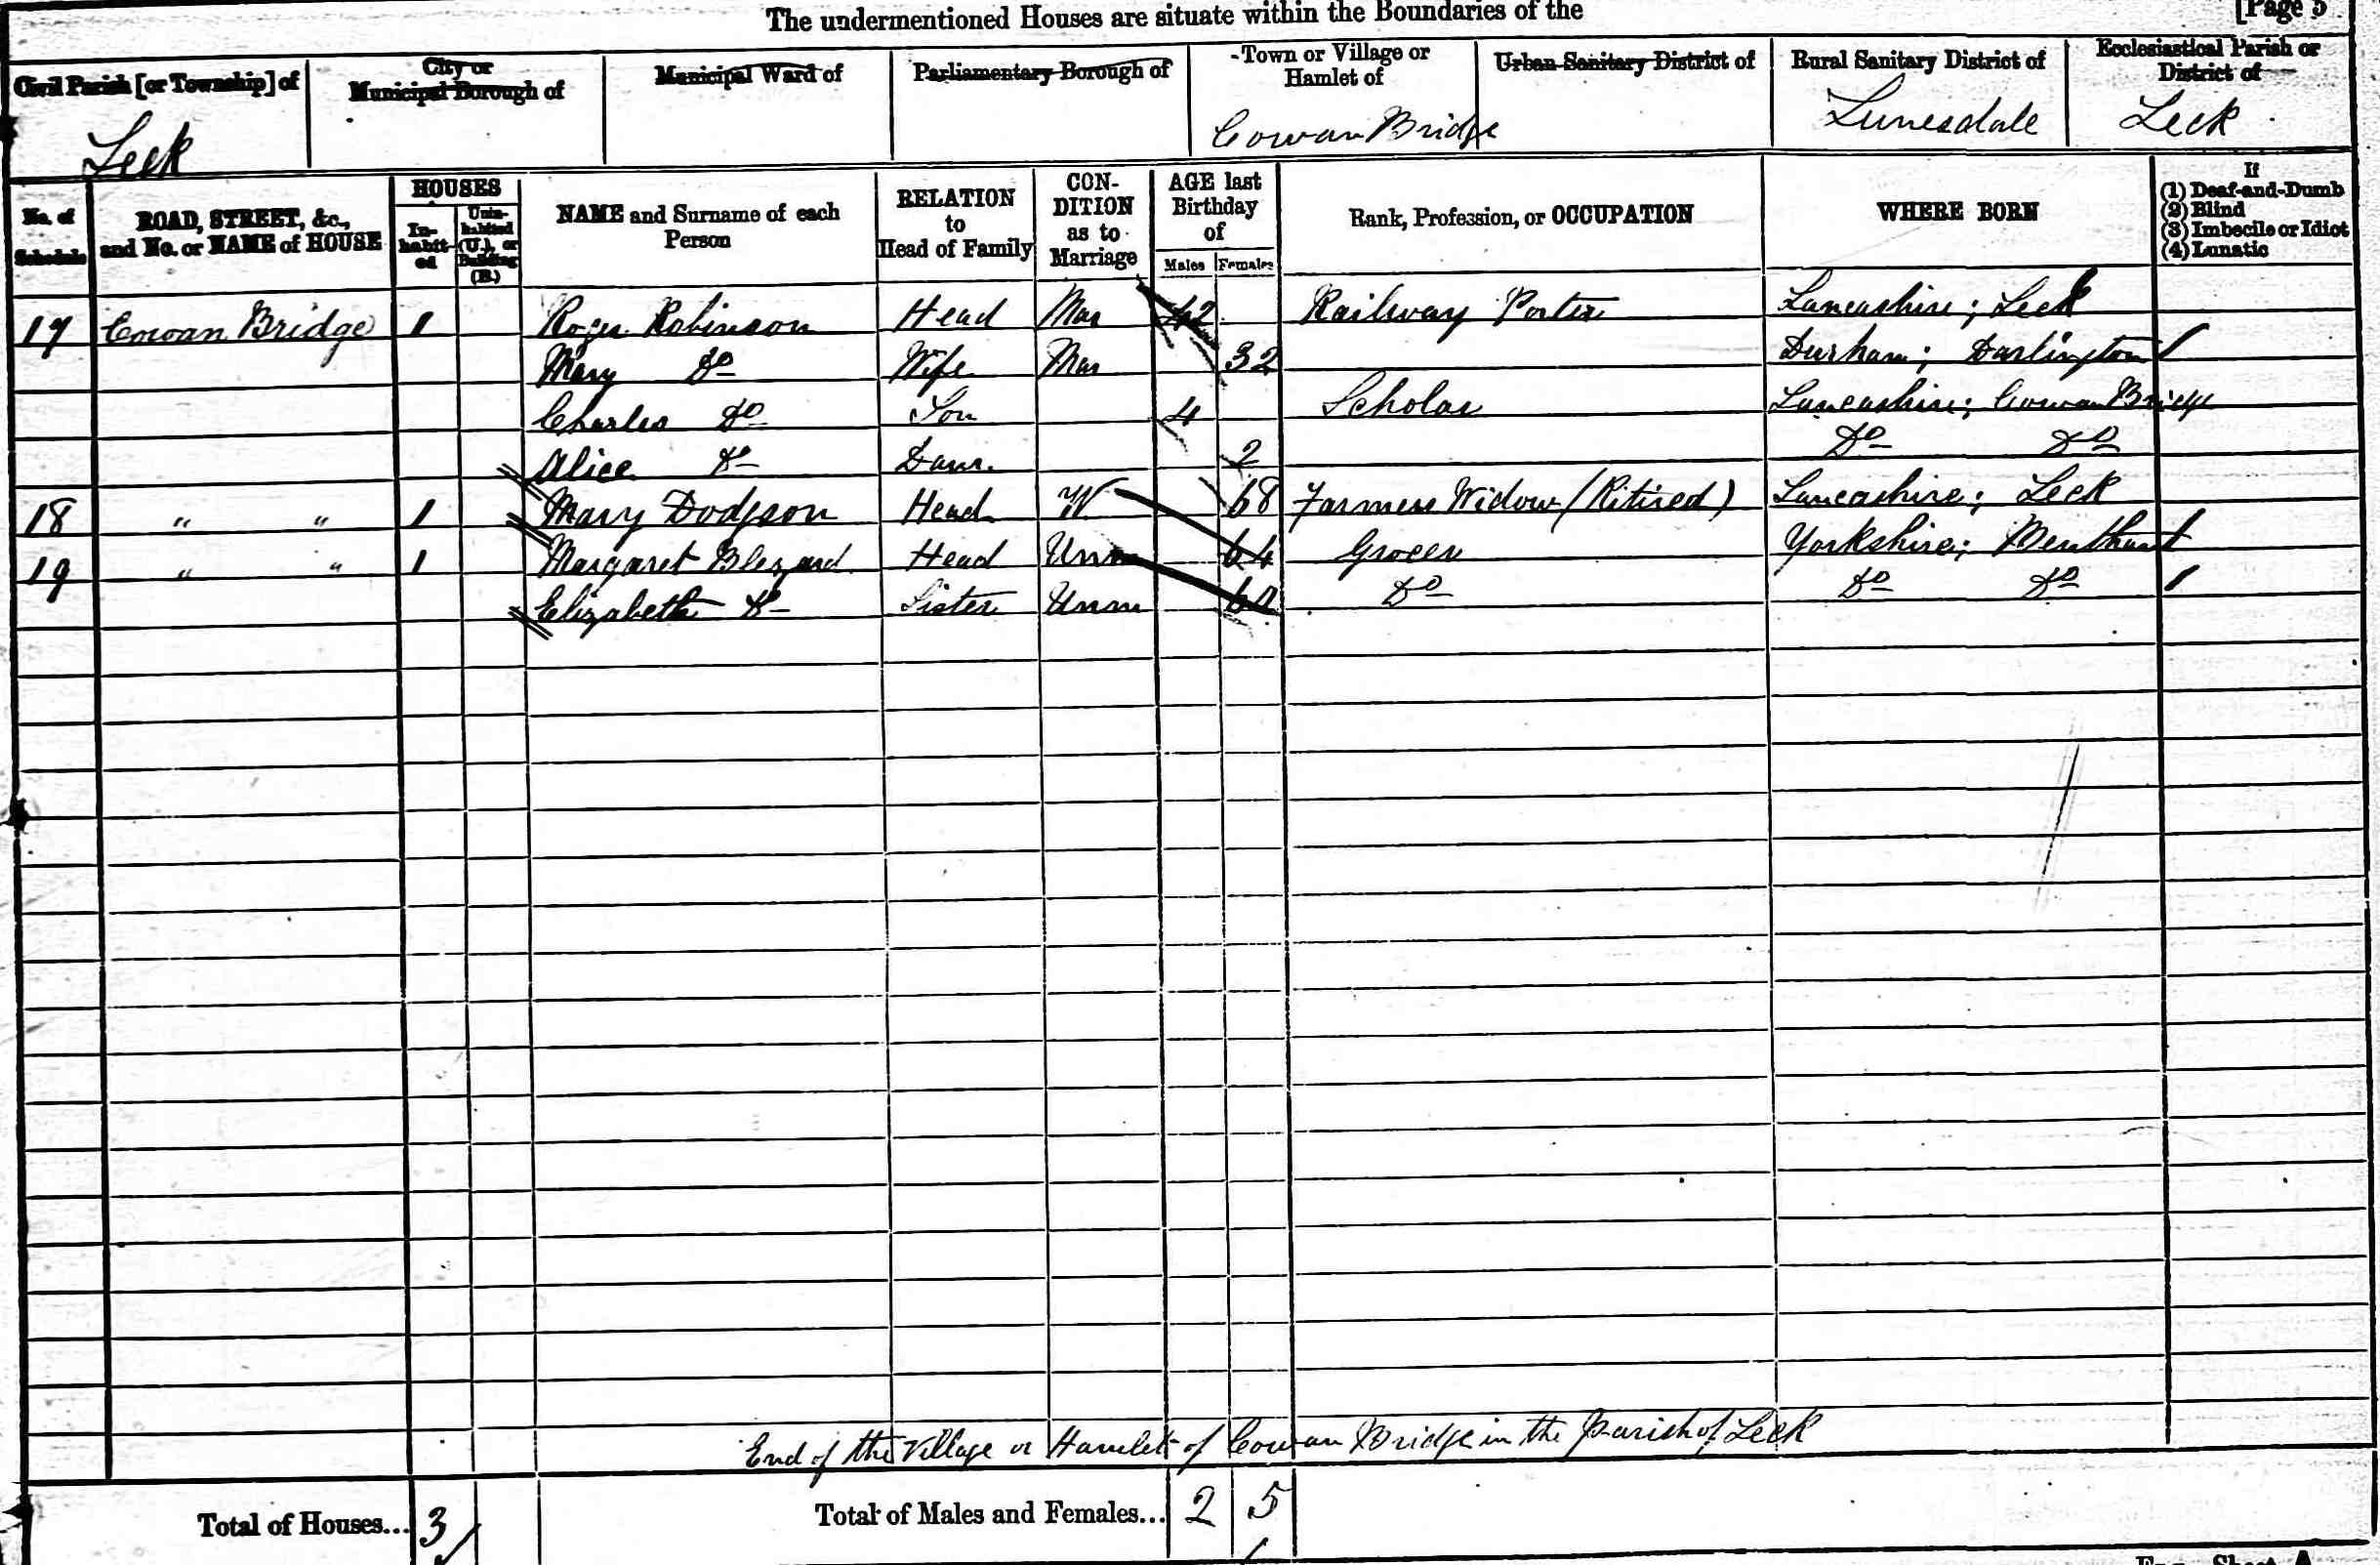 The undermentioned Houses are situate within the Boundaries of the
[Page 5
Civil Parish [or Township] of
City or Municipal Borough of
Municipal Ward of
Parliamentary Borough of
Town or Village or Hamlet of
Urban Sanitary District of
Rural Sanitary District of
Ecclesiastical Parish or District of
Leck
Cowan Bridge
Lunesdale
Leck
No. of Schedule
ROAD, STREET, &c., and No. or NAME of HOUSE
HOUSES
In-habit-ed
Unin-habited (U.), or Building (B.)
NAME and Surname of each Person
RELATION to Head of Family
CON-DITION as to Marriage
AGE last Birthday of
Males
Females
Rank, Profession, or OCCUPATION
WHERE BORN
If
(1) Deaf-and-Dumb
(2) Blind
(3) Imbecile or Idiot
(4) Lunatic
17 Cowan Bridge 1 Roger Robinson Head Mar 42 Railway Porter Lancashire; Leck
Mary Do Wife Mar 32 Durham; Darlington
Charles Do Son 4 Scholar Lancashire; Cowan Bridge
Alice Do Daur. 2 Do Do
18 " " 1 Mary Dodgson Head W 68 Farmers Widow (Ritired) Lancashire; Leck
19 " " 1 Margaret Blezard Head Unm 64 Grocer Yorkshire;
Elizabeth Do Sister Unm Do Do Do
End of the Village or Hamlet of Cowan Bridge in the Parish of Leck
Total of Houses... 3
Total of Males and Females... 2 5